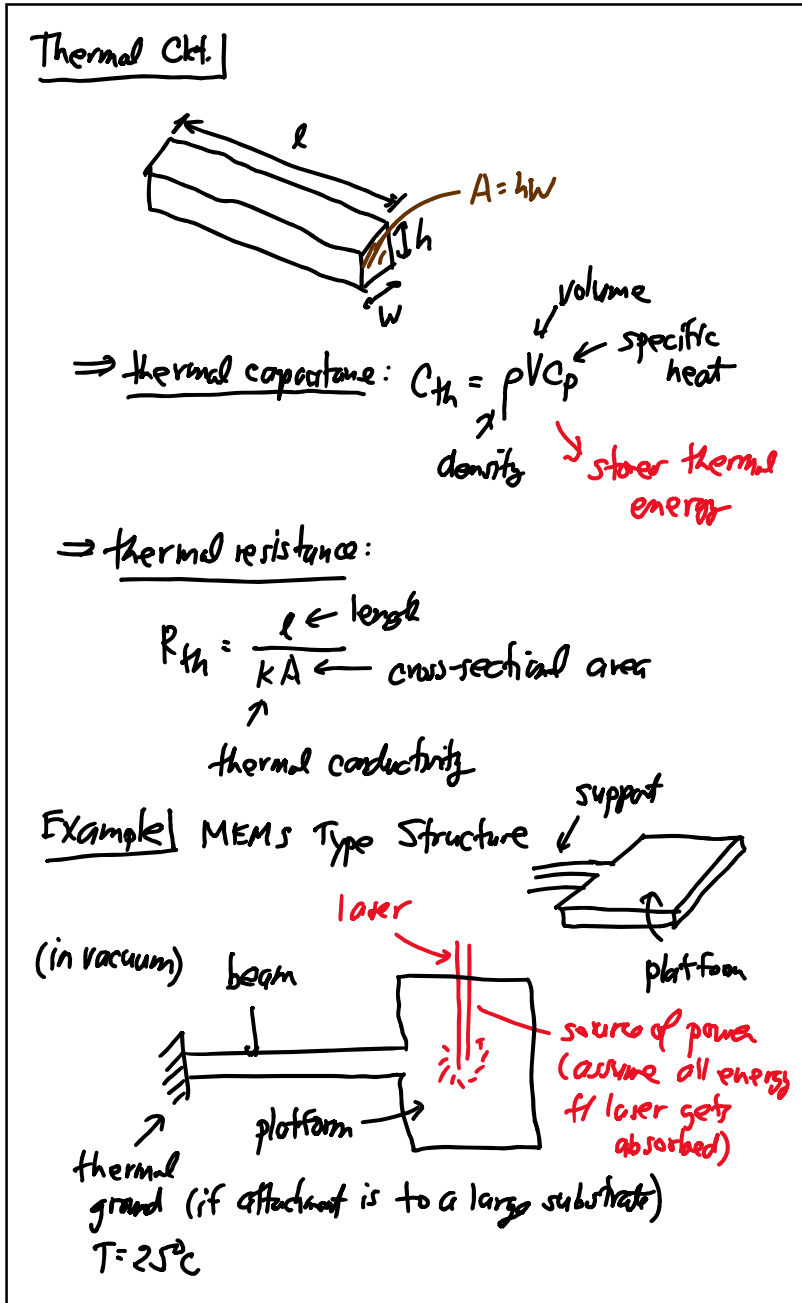 Thermal Ckt.
l
A = hw
h
w
volume
⇒ thermal capacitance: C_th = ρVc_p
specific heat
density
stores thermal energy
⇒ thermal resistance:
R_th = l / kA
length
cross-sectional area
thermal conductivity
Example MEMs Type Structure
support
laser
(in vacuum)
beam
platform
source of power
(assume all energy
f/ laser gets
absorbed)
platform
thermal
ground (if attachment is to a large substrate)
T = 25°C